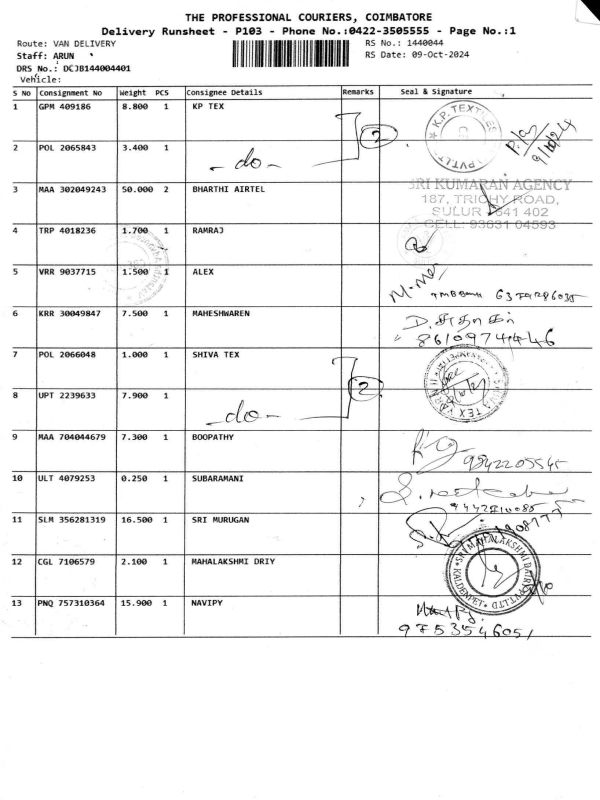 THE PROFESSIONAL COURIERS, COIMBATORE
Delivery Runsheet - P103 - Phone No.:0422-3505555 - Page No.:1
Route: VAN DELIVERY RS No.: 1440044
Staff: ARUN RS Date: 09-Oct-2024
DRS No.: DCJB144004401
Vehicle:
S No Consignment No Weight PCS Consignee Details Remarks Seal & Signature
1 GPM 409186 8.800 1 KP TEX
K.P. TEXTILES
PVT.LTD
9/10/24
2
2 POL 2065843 3.400 1 -do-
3 MAA 302049243 50.000 2 BHARTHI AIRTEL
SRI KUMARAN AGENCY
187, TRICHY ROAD,
SULUR 641 402
CELL: 93631 04593
4 TRP 4018236 1.700 1 RAMRAJ
5 VRR 9037715 1.500 1 ALEX
6 KRR 30049847 7.500 1 MAHESHWAREN
7 POL 2066048 1.000 1 SHIVA TEX
SHIVA TEX YARN
2
8 UPT 2239633 7.900 1 -do-
9 MAA 704044679 7.300 1 BOOPATHY
9842205545
10 ULT 4079253 0.250 1 SUBARAMANI
11 SLM 356281319 16.500 1 SRI MURUGAN
12 CGL 7106579 2.100 1 MAHALAKSHMI DRIY
SRI MAHALAKSHMI DAIRY
13 PNQ 757310364 15.900 1 NAVIPY
9753546051